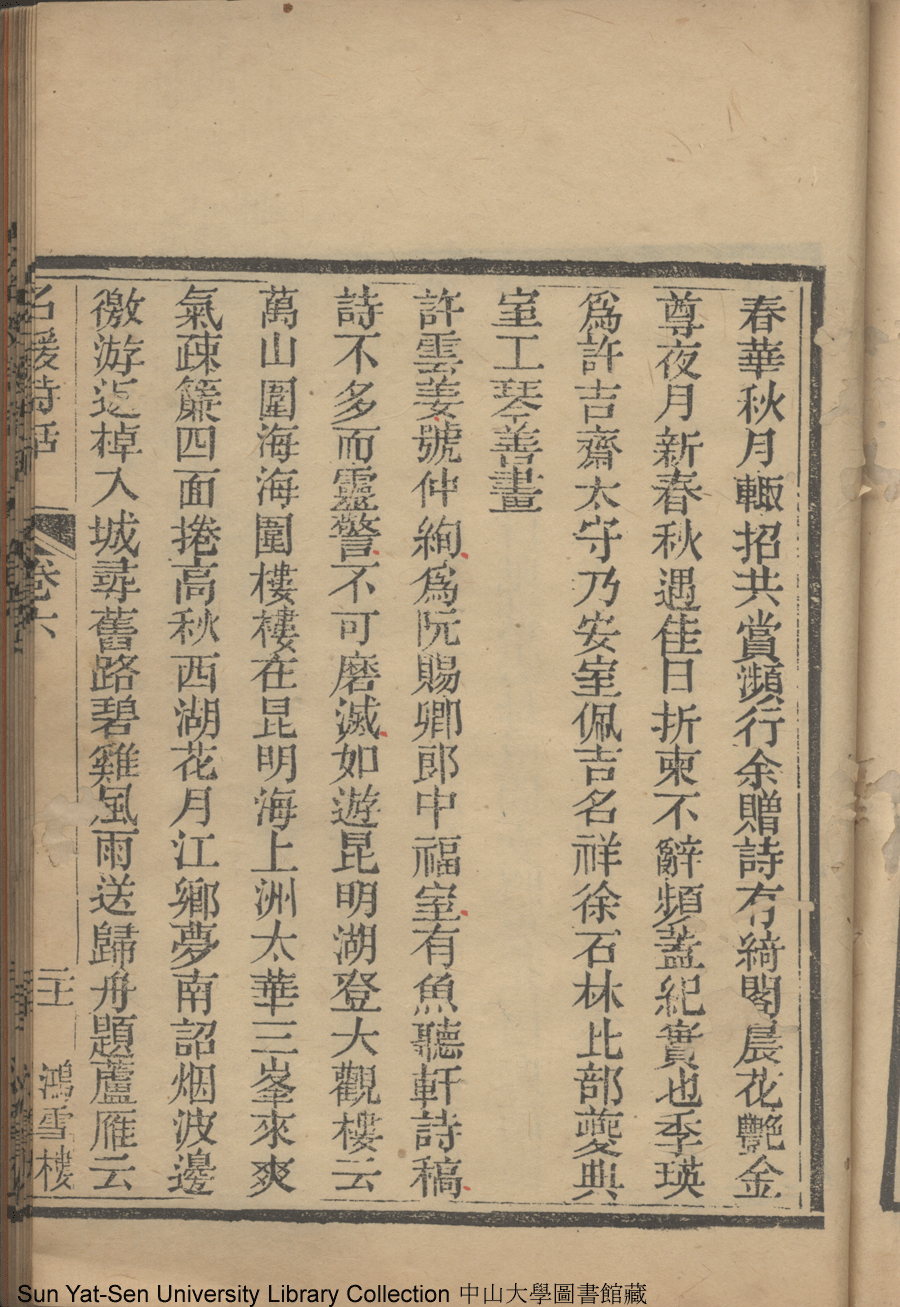 春華秋月輙招共賞瀕行余贈詩有綺閣晨花艷金
尊夜月新春秋遇佳日折柬不辭頻蓋紀實也季瑛
爲許吉齋太守乃安室佩吉名祥徐石林比部夔典
室工琴善畫
許雲姜號仲絢爲阮賜卿郎中福室有魚聽軒詩稿
詩不多而靈警不可磨滅如遊昆明湖登大觀樓云
萬山圍海海圍樓樓在昆明海上洲太華三峯來爽
氣疎簾四面捲高秋西湖花月江鄉夢南詔烟波邊
徼游返棹入城尋舊路碧雞風雨送歸舟題蘆雁云
名媛詩話 卷六 鴻雪樓
Sun Yat-Sen University Library Collection 中山大學圖書館藏